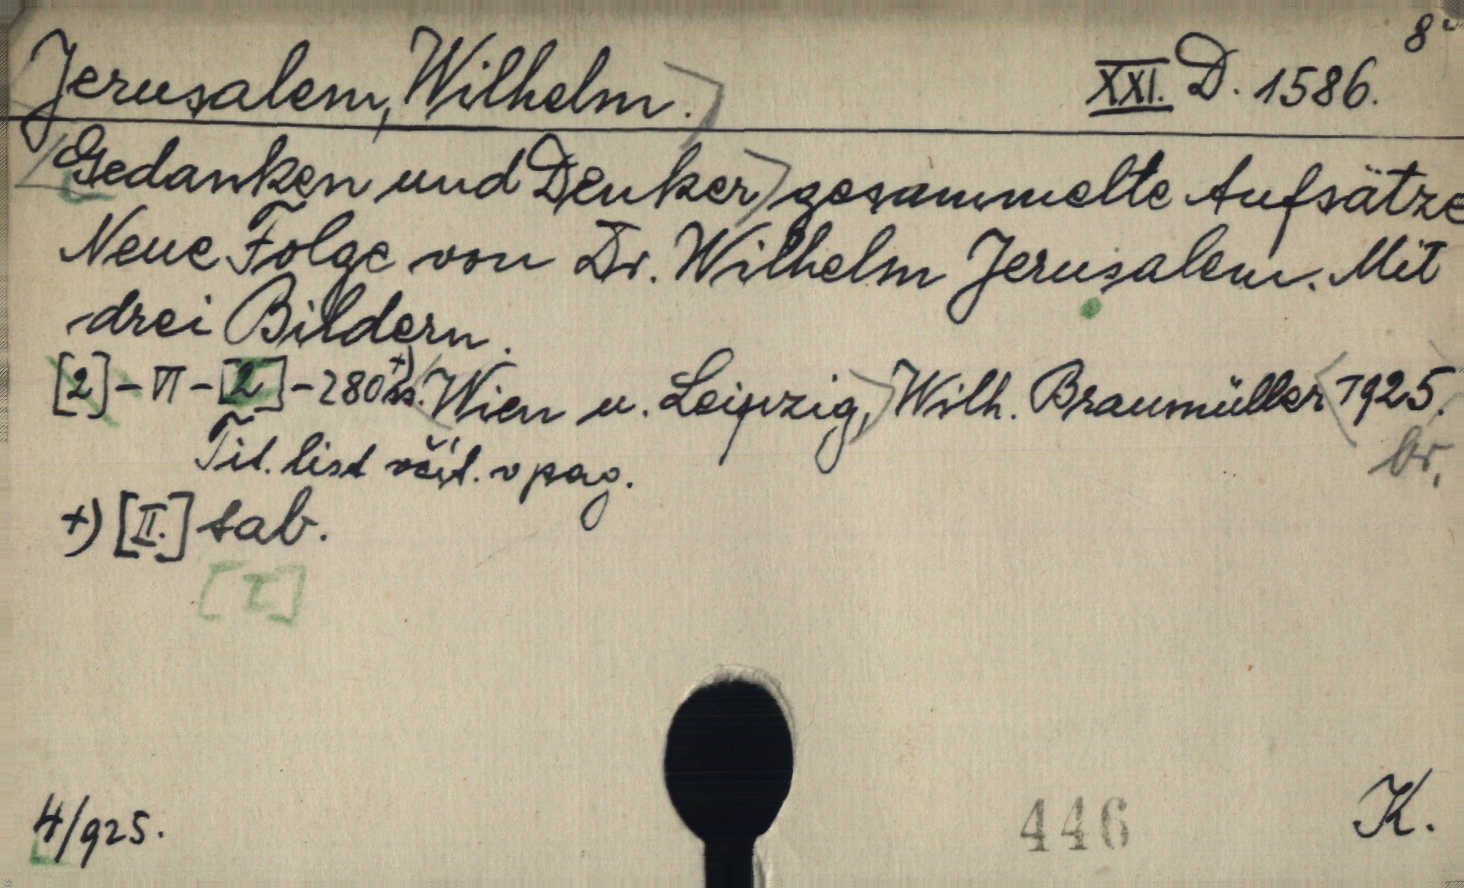 8°
Jerusalem, Wilhelm. XXI. D. 1586.
Gedanken und Denker gesammelte Aufsätze
Neue Folge von Dr. Wilhelm Jerusalem. Mit
drei Bildern.
[2] – VI – [2] – 280 +) ss. Wien u. Leipzig, Wilh. Braumüller 1925.
br.
Tit. list včít. v pag.
+) [II.] sab.
[I]
4/925. 446 K.